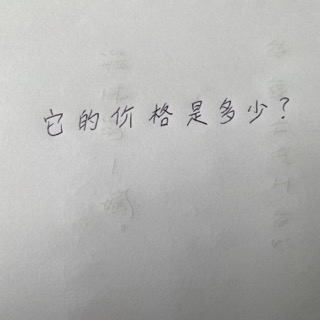 它的价格是多少？